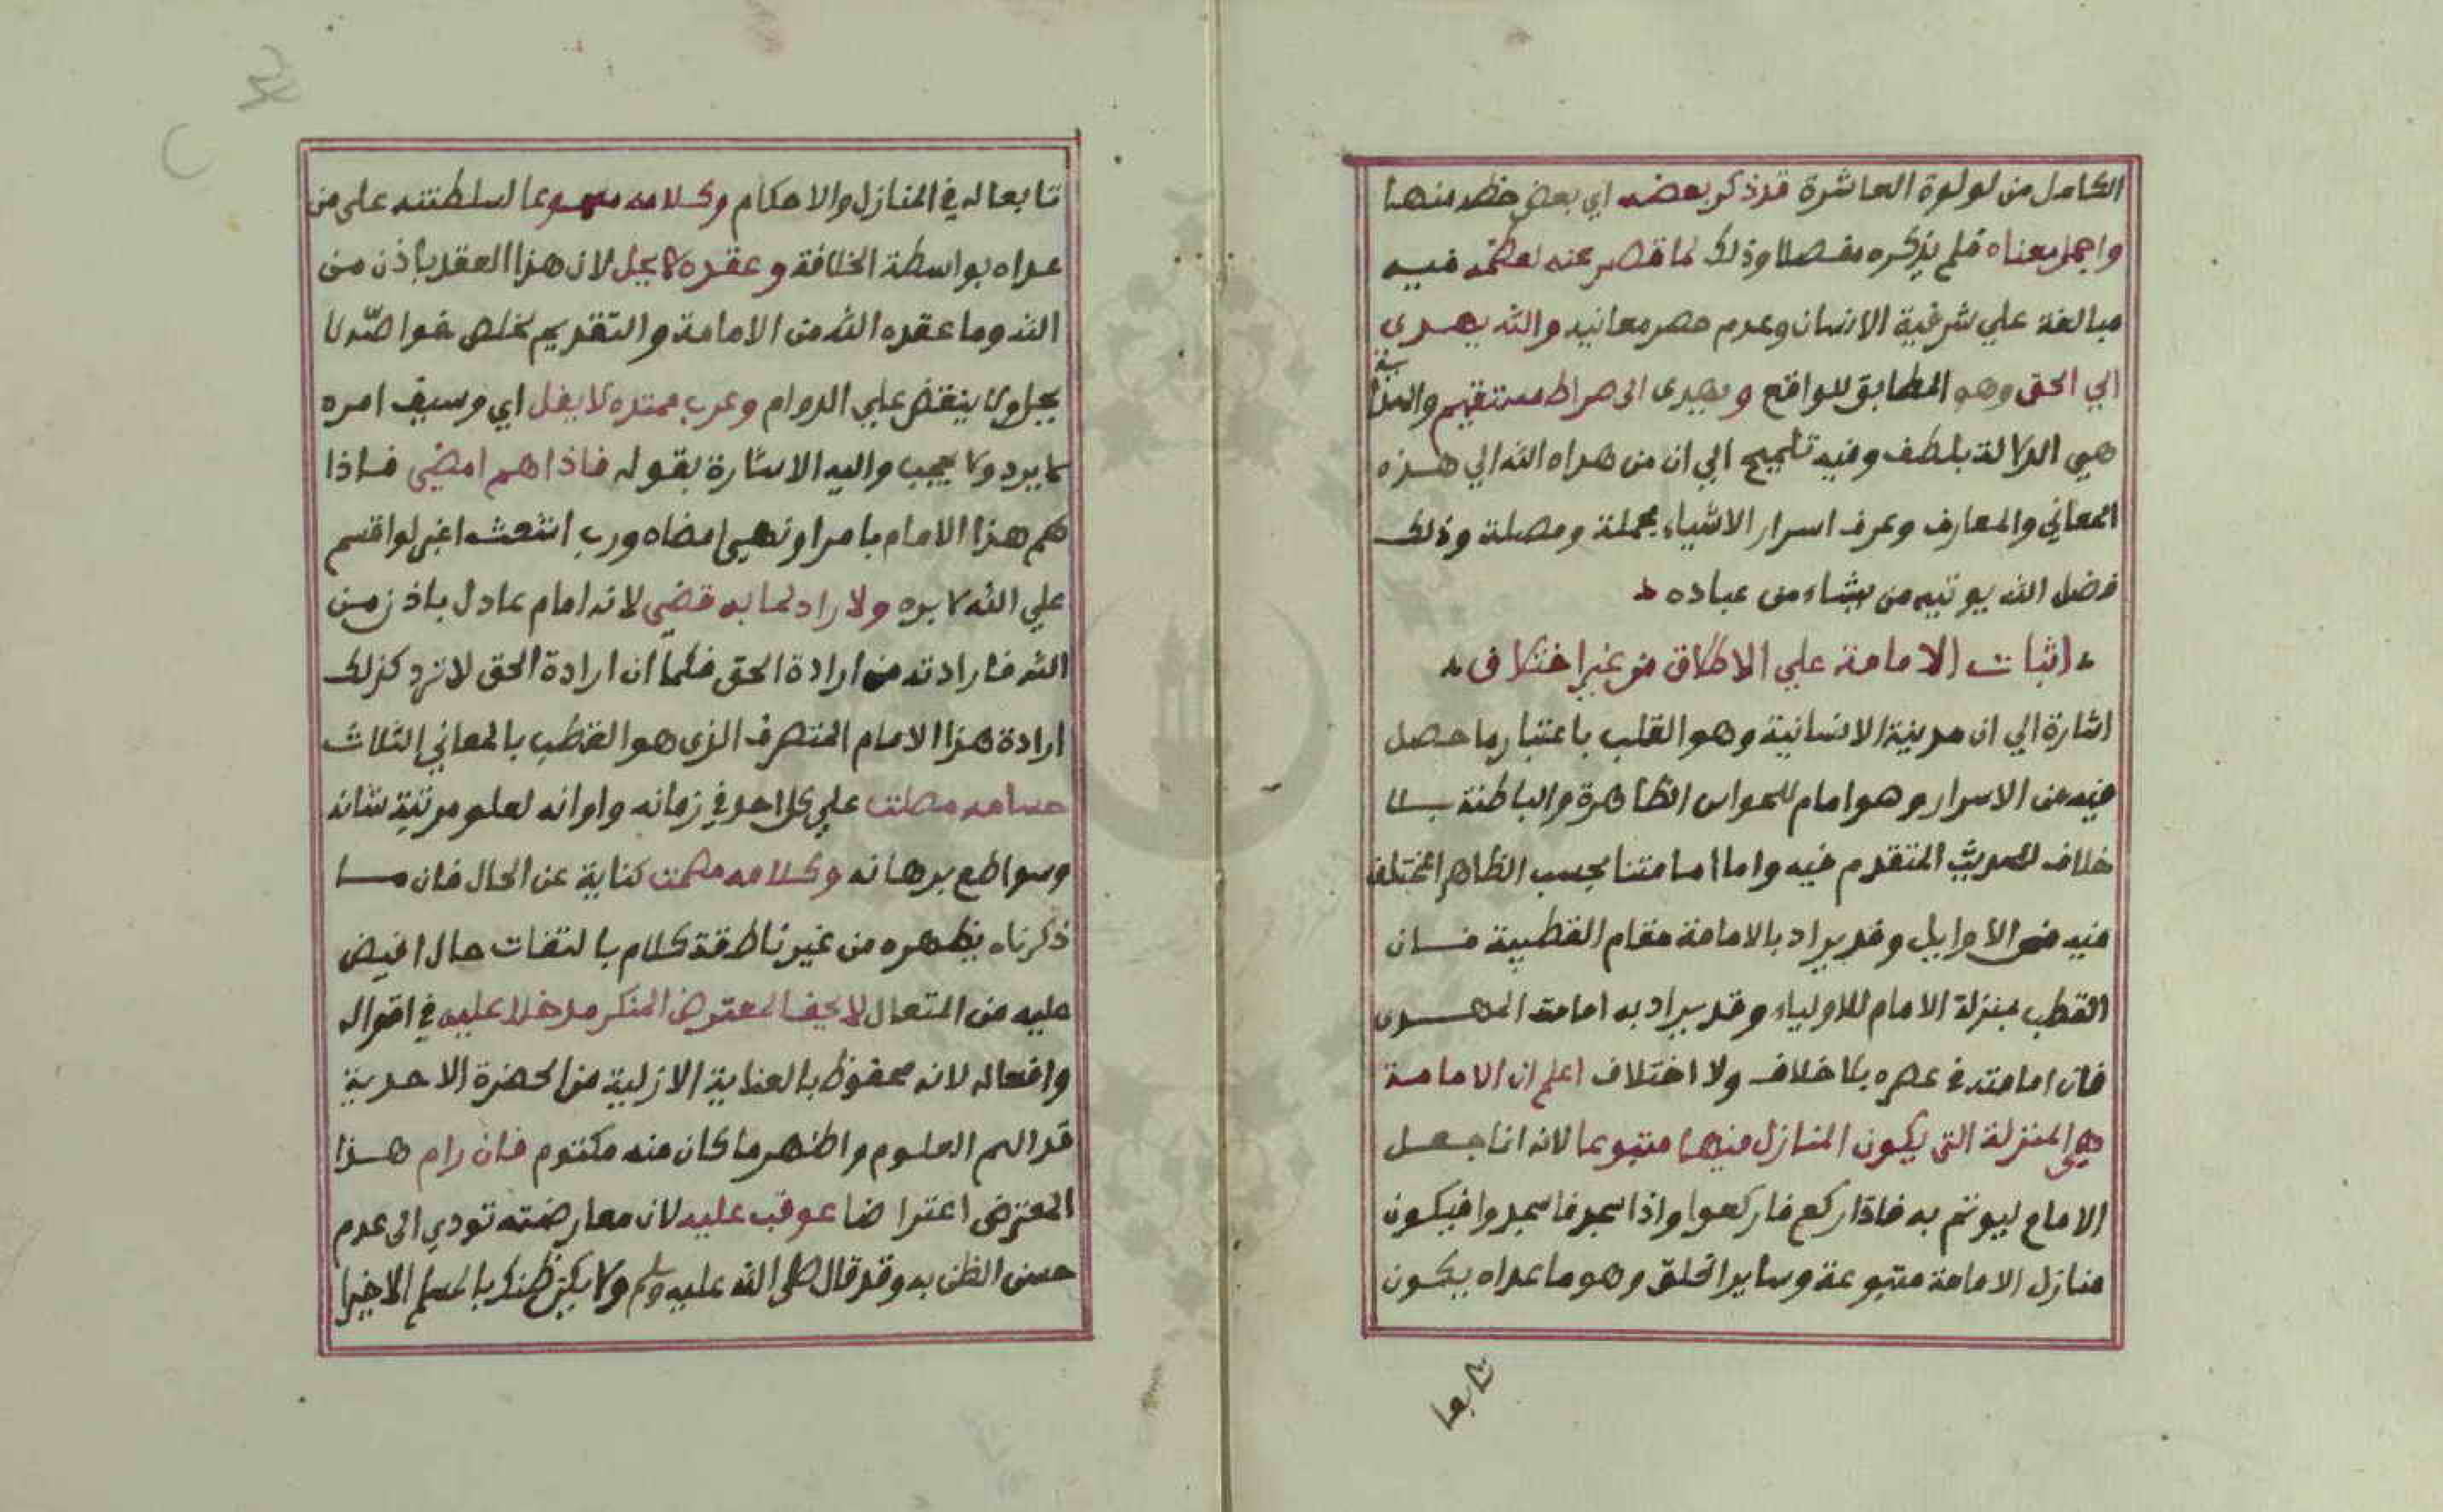 الكامل من لولوة العاشرة قد ذكر بعضه اي بعض حظه منها
واجمل معناه فلم يذكره مفصلا وذلك لما قصر عنه لعظمه فيه
مبالغة علي شرفية الانسان وعدم حصر معانيه والله يهدى
الي الحق وهو المطابق للواقع ويهدى الى صراط مستقيم والهداية
هي الدلالة بلطف وفيه تلميح الي ان من هداه الله الي هذه
المعاني والمعارف وعرف اسرار الاشياء بجملة ومصلة وذلك
فضل الله يوتيه من يشاء من عباده
اثبات الامامة علي الاطلاق من غير اختلاف
اشارة الي ان مدينة الانسانية وهو القلب باعتبار ما حصل
فيه من الاسرار وهو امام للحواس الظاهرة والباطنة بلا
خلاف للحديث المتقدم فيه واما امامتنا بحسب الظاهر المختلف
فيه فمن الاوايل وقد يراد بالامامة مقام القطبية فان
القطب بمنزلة الامام للاولياء وقد يراد به امامة المهدى
فان امامته في عصره بلا خلاف ولا اختلاف اعلم ان الامامة
هي المنزلة التي يكون المنازل فيها متبوعا لانه انما جعل
الامام ليوتم به فاذا ركع فاركعوا واذا سجد فاسجدوا فيكون
منازل الامامة متبوعة وساير الخلق وهو ما عداه يكون
تابعا
تابعا له في المنازل والاحكام وكلامه مسموعا لسلطنته على من
عداه بواسطة الخلافة وعقده لا يحل لان هذا العقد باذن من
الله وما عقده الله من الامامة والتقديم لخلص خواصّه لا
يحل ولا ينقض علي الدوام وعرب ممتده لا يفل اي وسيف امره
لا يرد ولا يحجب واليه الاشارة بقوله فاذا هم امضى فاذا
هم هذا الامام بامر او نهي امضاه ورب اشعث اغبر لو اقسم
علي الله لابره ولا راد لما به قضي لانه امام عادل باذن من
الله فارادته من ارادة الحق فكما ان ارادة الحق لا ترد كذلك
ارادة هذا الامام المتصرف الذى هو القطب بالمعاني الثلاث
حسامه مصلت علي كل احد في زمانه واوانه لعلو مرتبة شانه
وسواطع برهانه وكلامه مصمت كناية عن الحال فان ما
ذكرناه يظهره من غير ناطقة كلام بالتفات حال افيض
عليه من المتعال لا يجد المعترض المنكر مدخلا عليه في اقواله
وافعاله لانه محفوظ بالعناية الازلية من الحضرة الاحدية
قد الهم العلوم واظهر ما كان منه مكتوم فان رام هذا
المعترض اعتراضا عوقب عليه لان معارضته تودي الى عدم
حسن الظن به وقد قال صلى الله عليه وسلم ولا يكن ظنك بالمسلم الا خيرا